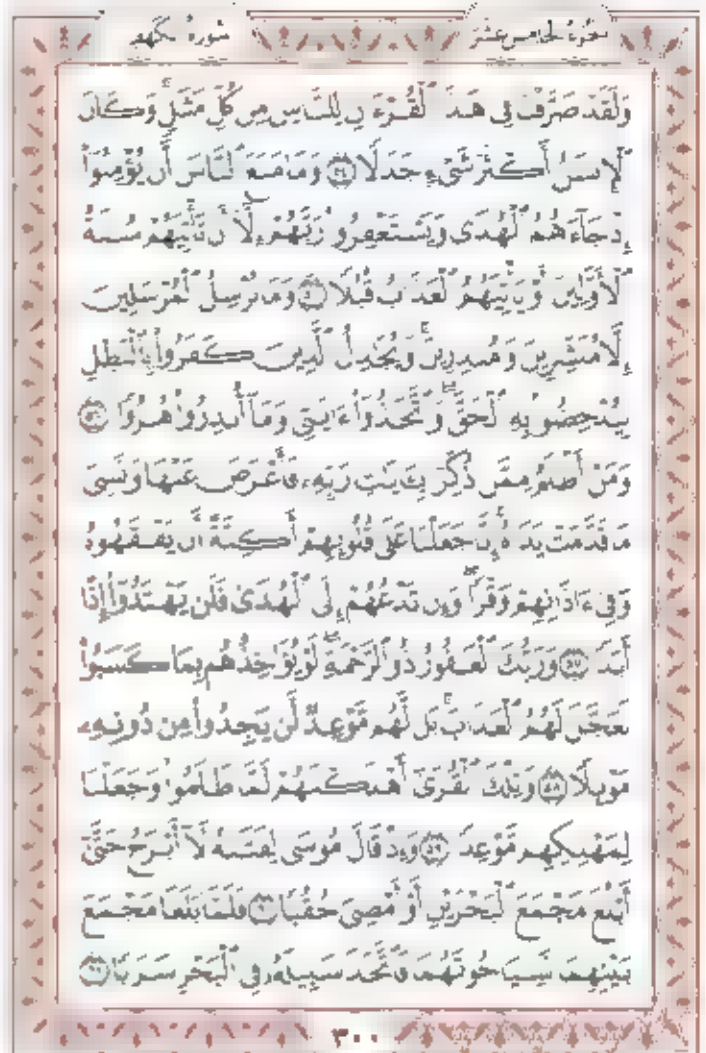 الجزء الخامس عشر سورة الكهف
وَلَقَدْ صَرَّفْنَا فِي هَٰذَا ٱلْقُرْءَانِ لِلنَّاسِ مِن كُلِّ مَثَلٍۚ وَكَانَ
ٱلْإِنسَٰنُ أَكْثَرَ شَىْءٍ جَدَلًا ٥٤ وَمَا مَنَعَ ٱلنَّاسَ أَن يُؤْمِنُوٓا۟
إِذْ جَآءَهُمُ ٱلْهُدَىٰ وَيَسْتَغْفِرُوا۟ رَبَّهُمْ إِلَّآ أَن تَأْتِيَهُمْ سُنَّةُ
ٱلْأَوَّلِينَ أَوْ يَأْتِيَهُمُ ٱلْعَذَابُ قُبُلًا ٥٥ وَمَا نُرْسِلُ ٱلْمُرْسَلِينَ
إِلَّا مُبَشِّرِينَ وَمُنذِرِينَۚ وَيُجَٰدِلُ ٱلَّذِينَ كَفَرُوا۟ بِٱلْبَٰطِلِ
لِيُدْحِضُوا۟ بِهِ ٱلْحَقَّۖ وَٱتَّخَذُوٓا۟ ءَايَٰتِى وَمَآ أُنذِرُوا۟ هُزُوًا ٥٦
وَمَنْ أَظْلَمُ مِمَّن ذُكِّرَ بِـَٔايَٰتِ رَبِّهِۦ فَأَعْرَضَ عَنْهَا وَنَسِىَ
مَا قَدَّمَتْ يَدَاهُۚ إِنَّا جَعَلْنَا عَلَىٰ قُلُوبِهِمْ أَكِنَّةً أَن يَفْقَهُوهُ
وَفِىٓ ءَاذَانِهِمْ وَقْرًاۖ وَإِن تَدْعُهُمْ إِلَى ٱلْهُدَىٰ فَلَن يَهْتَدُوٓا۟ إِذًا
أَبَدًا ٥٧ وَرَبُّكَ ٱلْغَفُورُ ذُو ٱلرَّحْمَةِۖ لَوْ يُؤَاخِذُهُم بِمَا كَسَبُوا۟
لَعَجَّلَ لَهُمُ ٱلْعَذَابَۚ بَل لَّهُم مَّوْعِدٌ لَّن يَجِدُوا۟ مِن دُونِهِۦ
مَوْئِلًا ٥٨ وَتِلْكَ ٱلْقُرَىٰٓ أَهْلَكْنَٰهُمْ لَمَّا ظَلَمُوا۟ وَجَعَلْنَا
لِمَهْلِكِهِم مَّوْعِدًا ٥٩ وَإِذْ قَالَ مُوسَىٰ لِفَتَىٰهُ لَآ أَبْرَحُ حَتَّىٰٓ
أَبْلُغَ مَجْمَعَ ٱلْبَحْرَيْنِ أَوْ أَمْضِىَ حُقُبًا ٦٠ فَلَمَّا بَلَغَا مَجْمَعَ
بَيْنِهِمَا نَسِيَا حُوتَهُمَا فَٱتَّخَذَ سَبِيلَهُۥ فِى ٱلْبَحْرِ سَرَبًا ٦١
٣٠٠